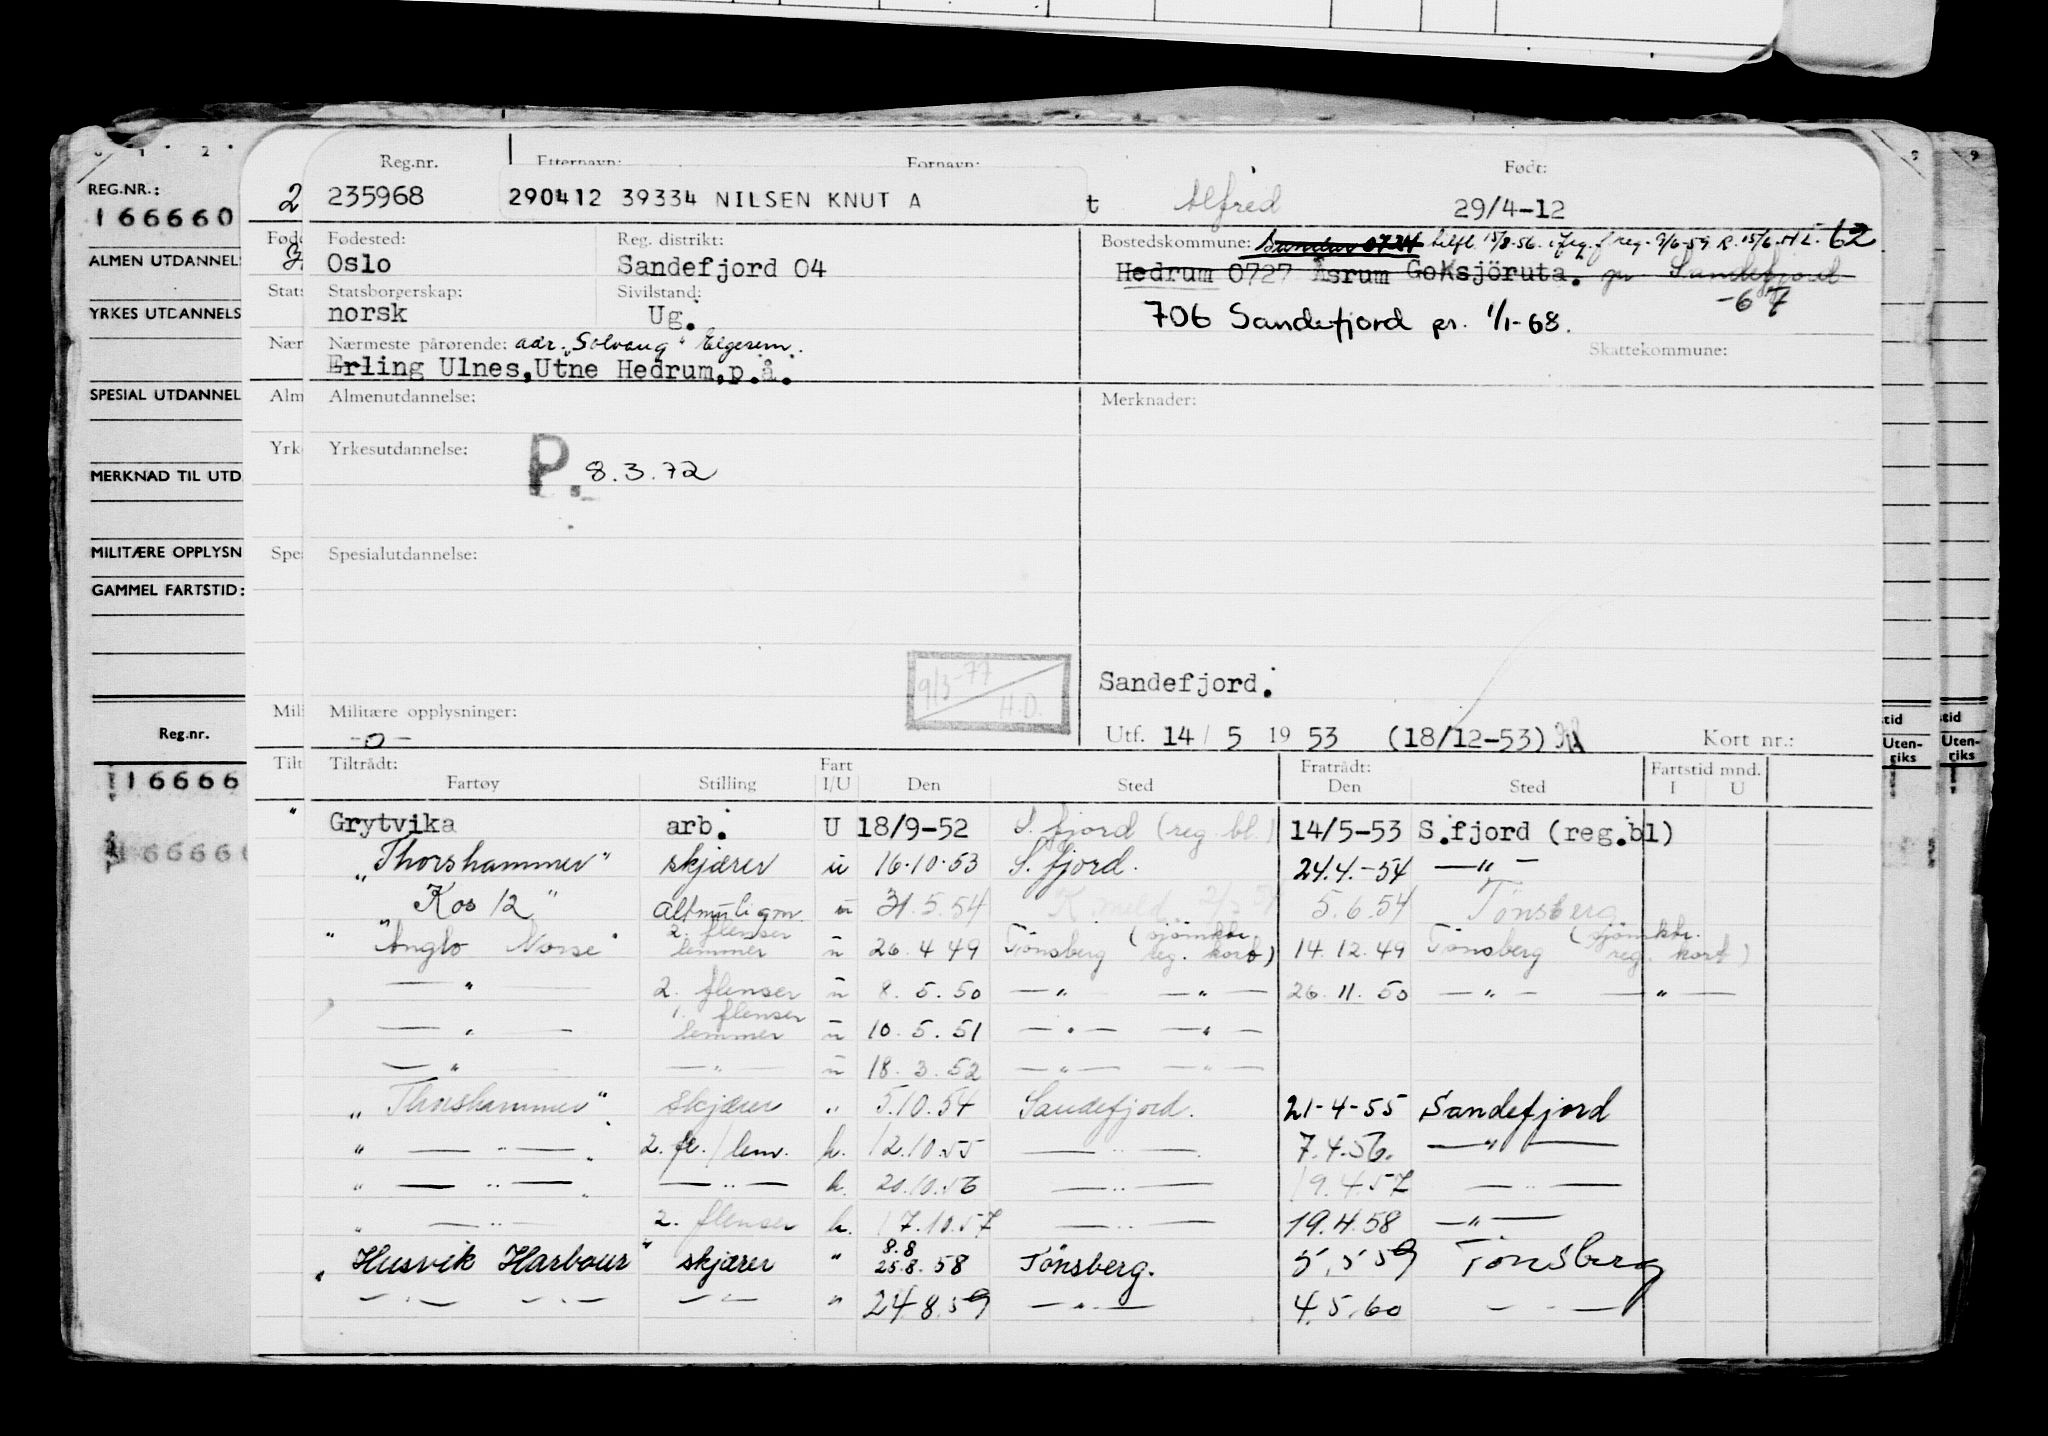 REG.NR.:
166660
ALMEN UTDANNEL
YRKES UTDANNELS
SPESIAL UTDANNEL
MERKNAD TIL UTD
MILITÆRE OPPLYSN
GAMMEL FARTSTID:
Reg.nr.
16666
166660
Reg.nr. Etternavn: Fornavn: Født:
2 235968 290412 39334 NILSEN KNUT A t Alfred 29/4-12
Fødested: Reg. distrikt: Bostedskommune: Sandar 0724 15/8-56. 62
Oslo Sandefjord 04 Hedrum 0727 Åsrum Goksjöruta. Sandefjord
Stats Statsborgerskap: Sivilstand: -67
norsk Ug. 706 Sandefjord pr. 1/1-68.
Nær Nærmeste pårørende: adr. "Solvang" Elgesem. Skattekommune:
Erling Ulnes, Utne Hedrum, p.å.
Alm Almenutdannelse: Merknader:
Yrk Yrkesutdannelse:
P. 8.3.72
Spe Spesialutdannelse:
9/3-77
H.D.
Sandefjord.
Mili Militære opplysninger:
-0- Utf. 14/5 1953 (18/12-53) Kort nr.:
Tilt Tiltrådt: Fart Fratrådt: Fartstid mnd.
Fartøy Stilling I/U Den Sted Den Sted I U
Grytvika arb. U 18/9-52 S.fjord (reg.bl.) 14/5-53 S.fjord (reg.bl)
"Thorshammer" skjærer u 16.10.53 S.fjord. 24.4.-54 —"—
"Kos 12" altmuligm u 31.5.54 5.6.54 Tønsberg
"Anglo Norse" 2. flenser lemmer u 26.4 49 Tønsberg (sjömktr. reg. kort) 14.12.49 Tønsberg (sjömktr. reg. kort)
—"— 2. flenser u 8.5.50 —"— —"— 26.11.50 —"— —"—
—"— 1. flenser lemmer u 10.5.51 —"— —"—
—"— —"— u 18.3.52 —"— —"—
"Thorshammer" skjærer " 5.10.54 Sandefjord. 21-4-55 Sandefjord
" —"— 2. fl./lem. u. 12.10.55 —"— 7.4.56. —"—
" —"— —"— u. 20.10.56 —"— 19.4.57 —"—
" —"— 2. flenser u. 17.10.57 —"— 19.4.58 —"—
"Husvik Harbour" skjærer " 8.8 25.8.58 Tönsberg. 5.5 59 Tönsberg
—"— —"— —"— " 24.8.59 —"— 4.5.60 —"—
tid
Uten-
riks
tid
Uten-
riks